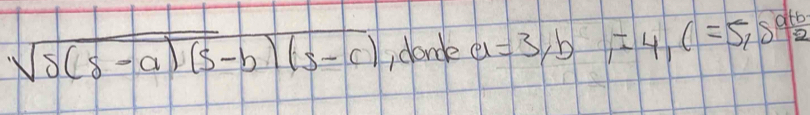 √s(s-a)(s-b)(s-c), donde a=3, b =4, c=5, s a+b/2